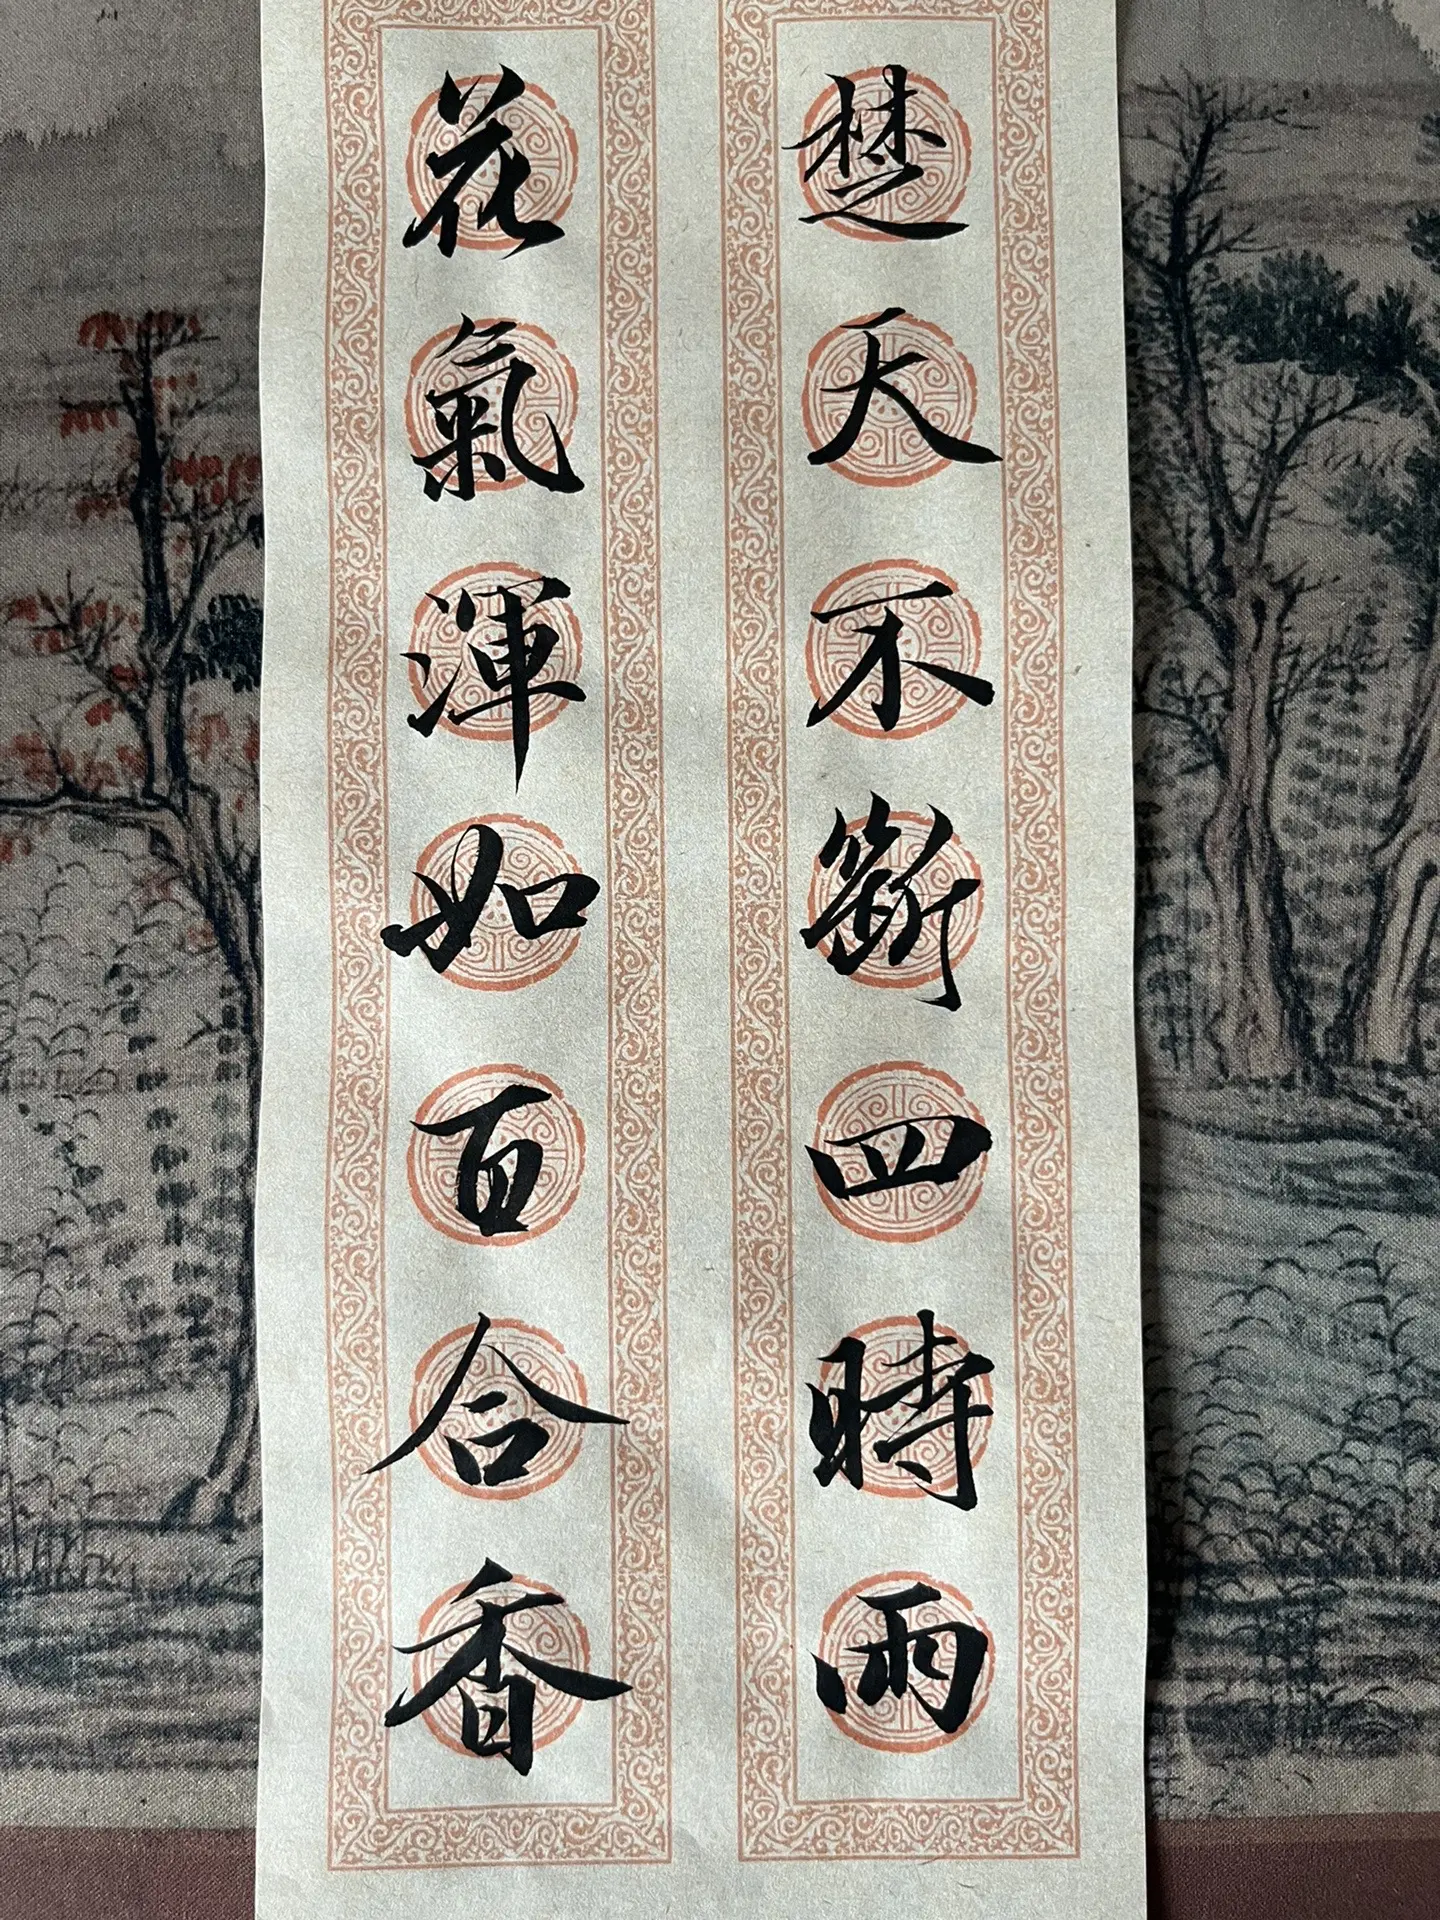 楚天不斷四時雨
花氣渾如百合香